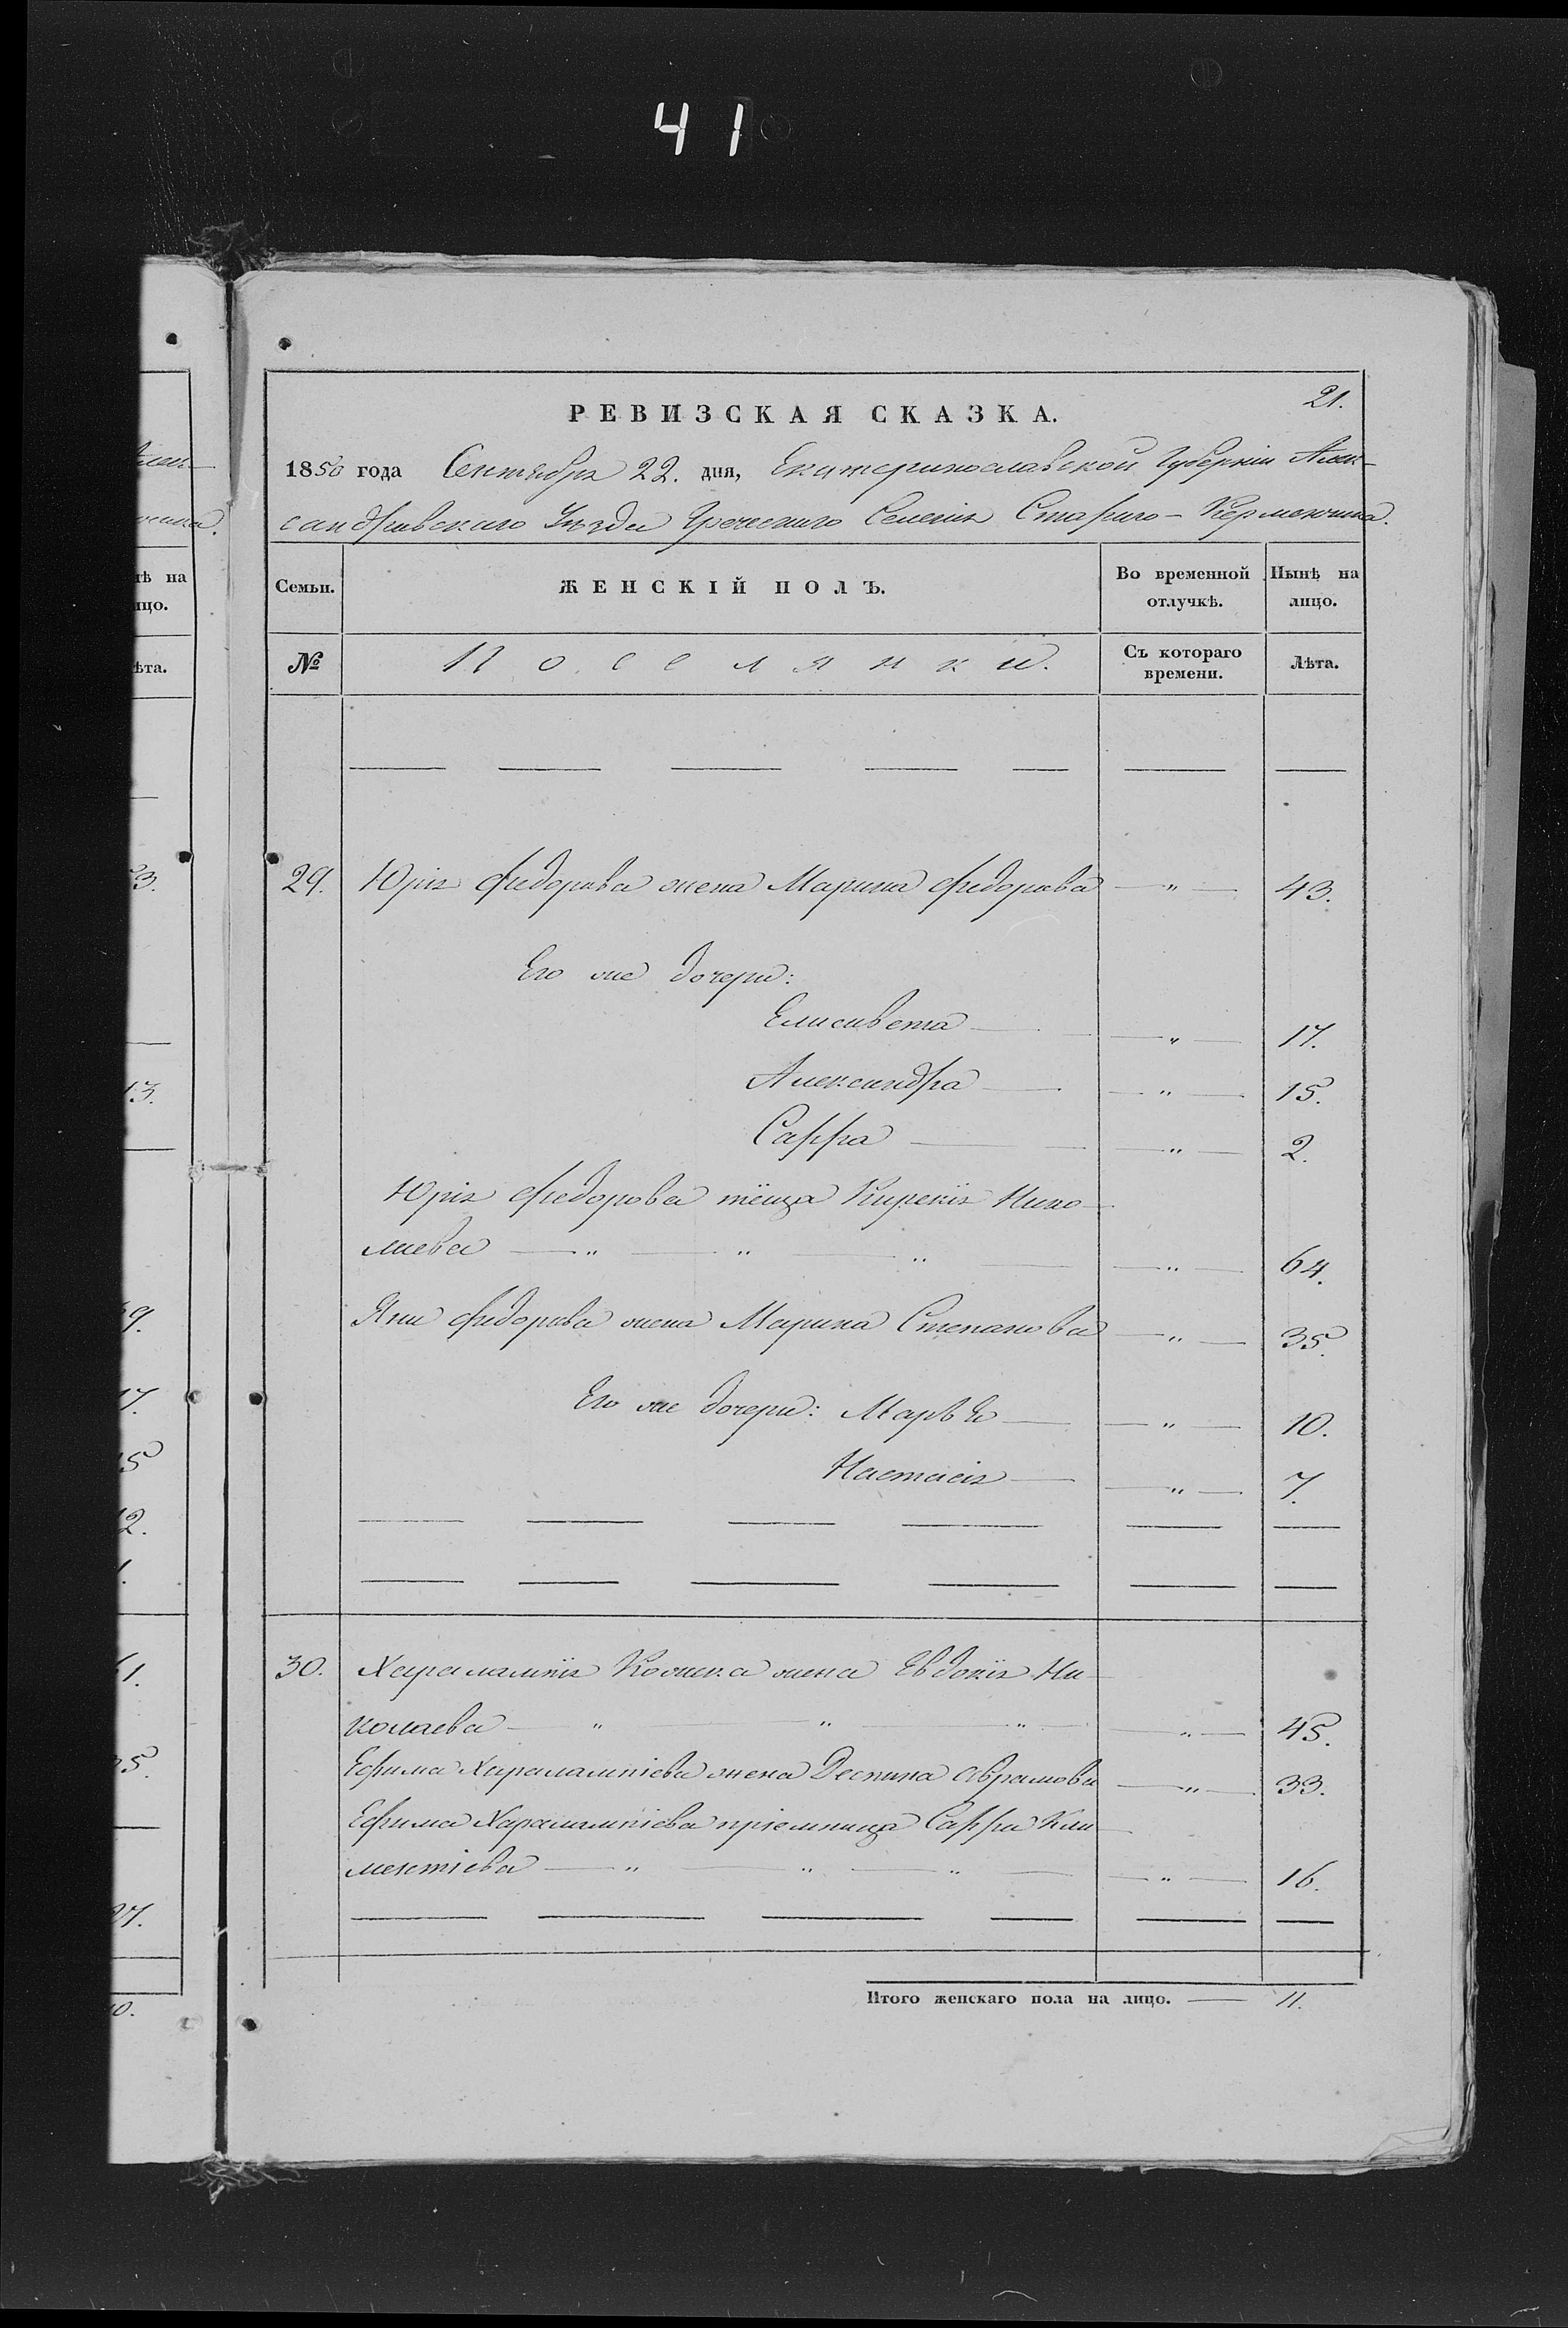 41
21.
РЕВИЗСКАЯ СКАЗКА.
1850 года Сентября 22. дня, Екатеринославской Губерніи Алек-
сандровскаго Уѣзда Греческаго Селенія Стараго-Керменчика.
Семьи. ЖЕНСКІЙ ПОЛЪ. Во временной отлучкѣ. Нынѣ на лицо.
№ Поселянки. Съ котораго времени. Лѣта.
29. Юрія Федорова жена Марина Федорова — " — 43.
Его же дочери:
Елисавета — — " — 17.
Александра — — " — 15.
Сарра — — " — 2.
Юрія Федорова тёща Кирекія Нико-
лаева — " — " " — — " — 64.
Яни Федорова жена Марина Степанова — " — 35.
Его же дочери: Марѳа — — " — 10.
Настасія — — " — 7.
30. Харалампія Кожека жена Евдокія Ни-
колаева — " — " — " — " — 45.
Ефима Харалампіева жена Деспина Аврамова — " — 33.
Ефима Харалампіева пріемница Сарра Кли-
ментіева — " — " — " — — " — 16.
Итого женскаго пола на лицо. — 11.